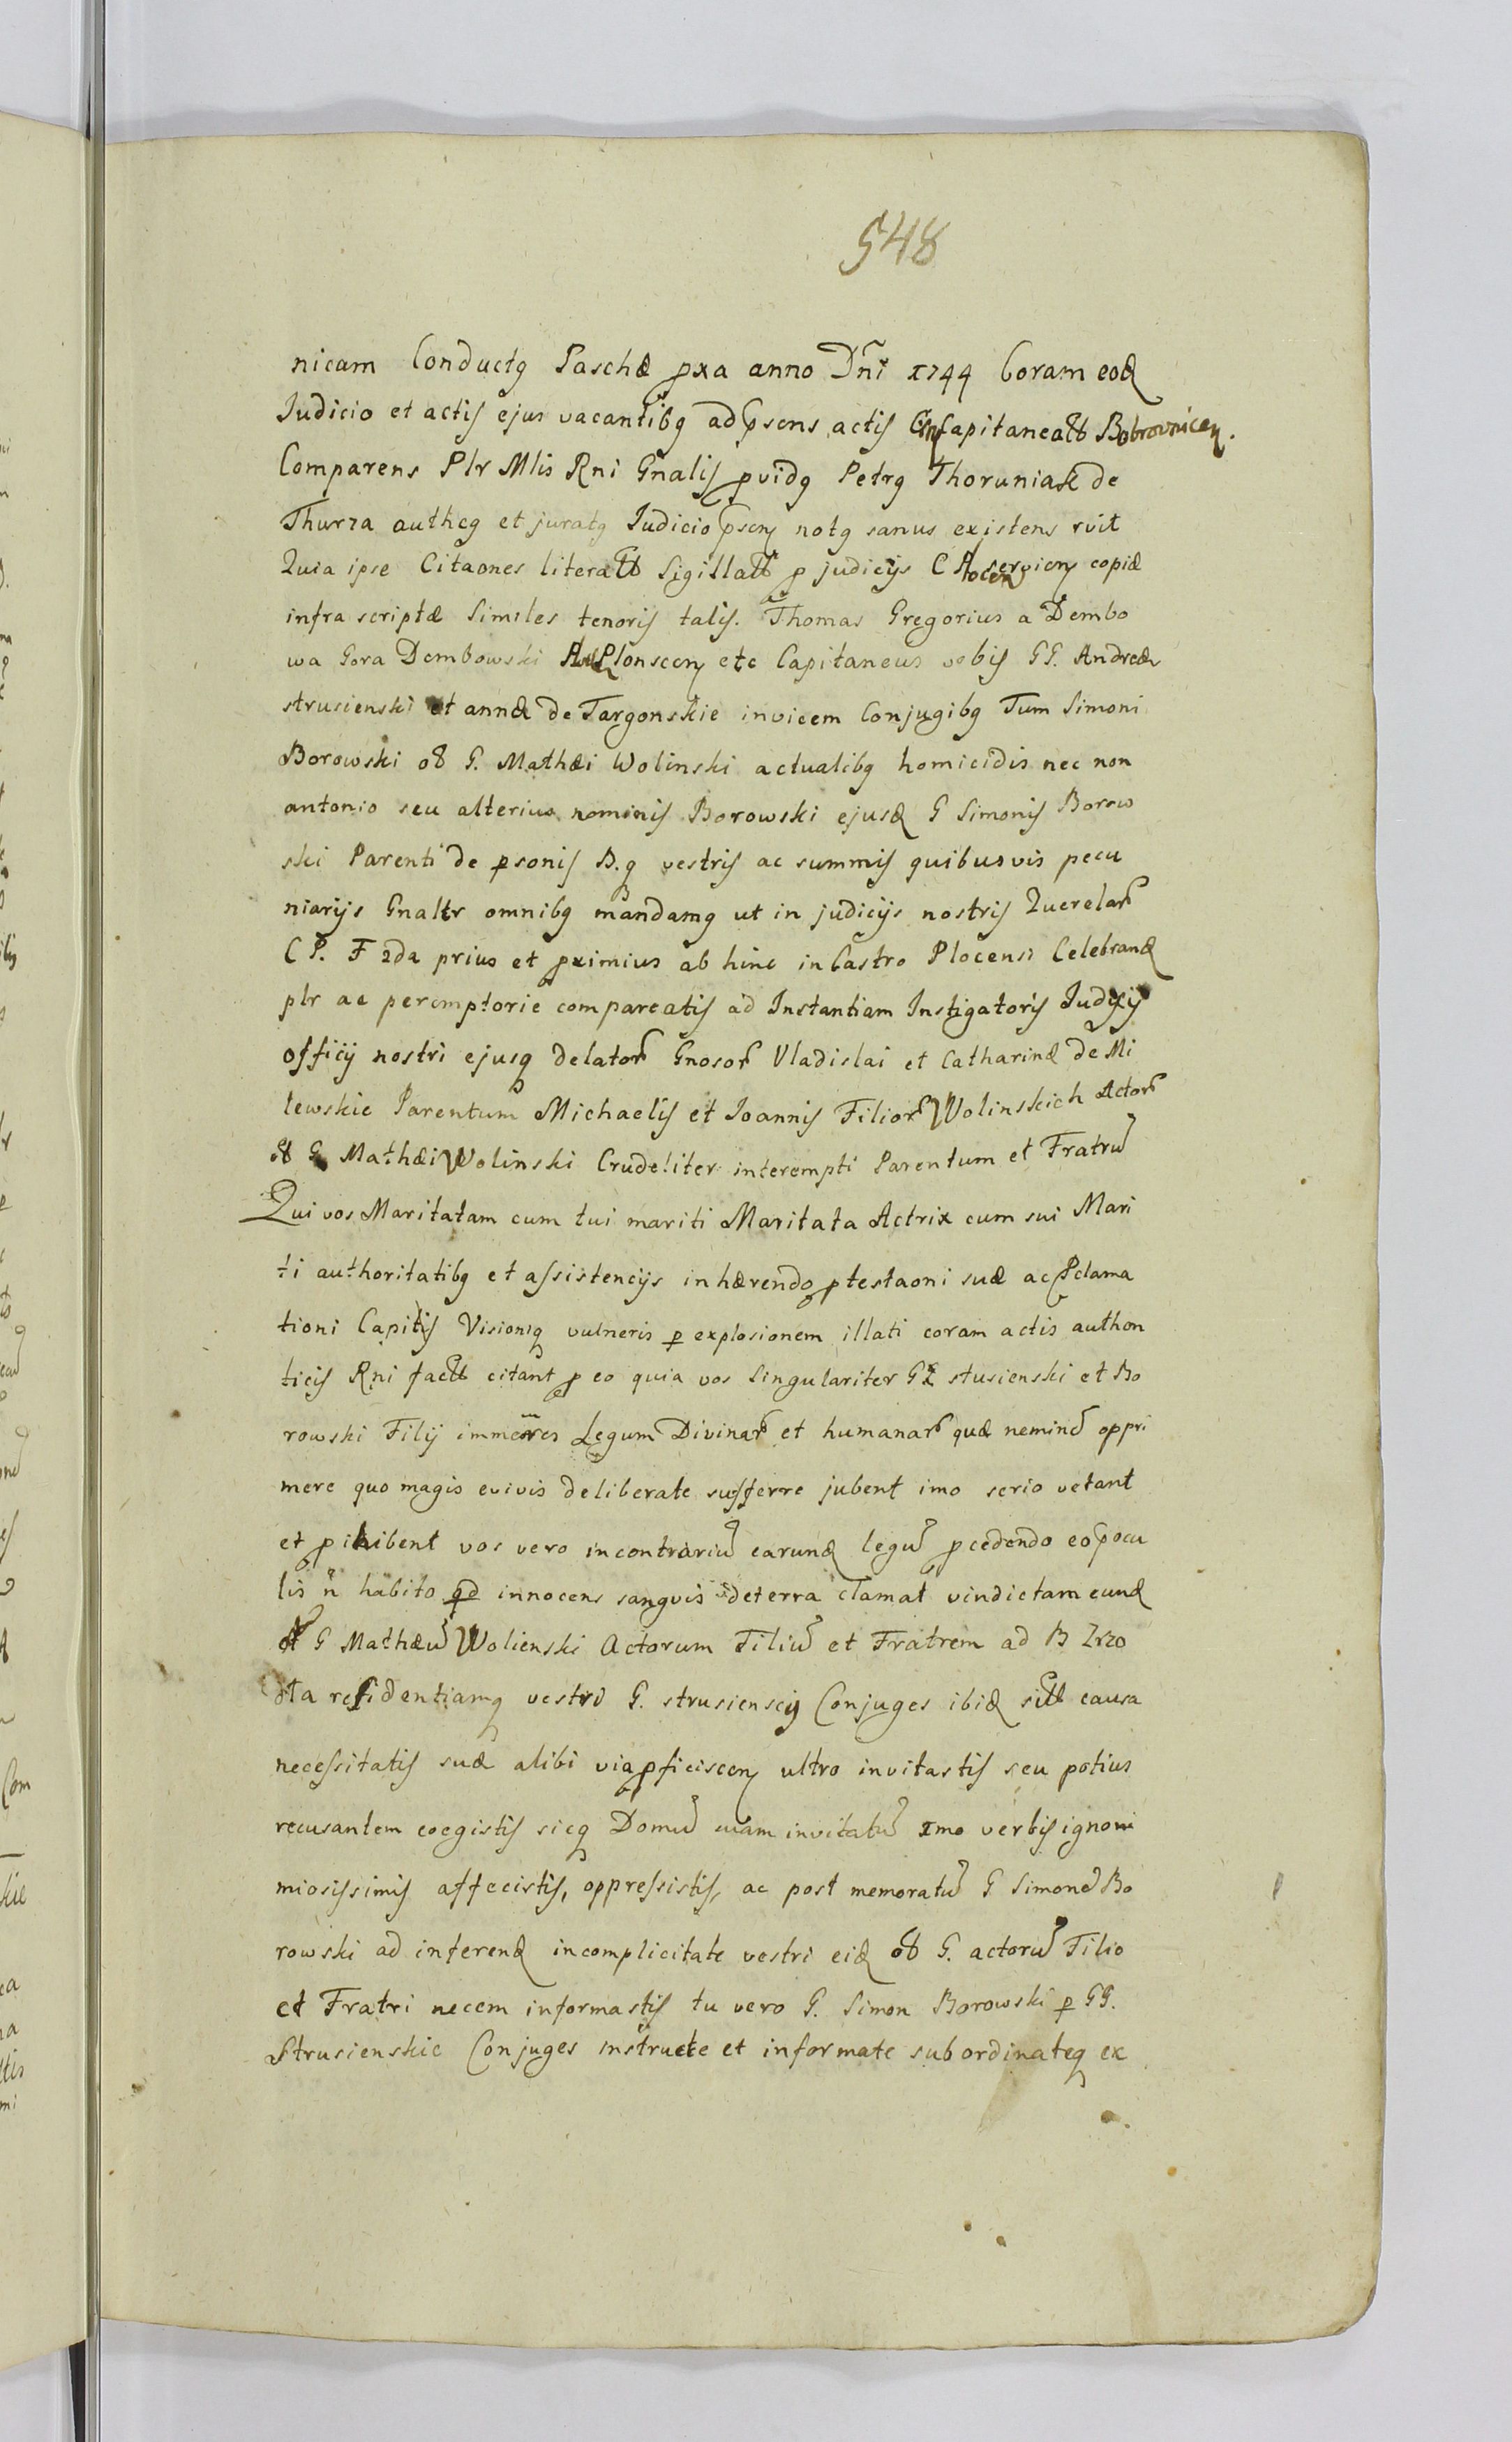 548
nicam Conductq Paschæ pxa anno Dni 1744 Coram eod
Judicio et actis ejus vacantibq ad psens actis Capitaneatt Bobrovnicen.
Comparens Plr Mlis Rni Gnalis pvidq Petrq Thoruniak de
Thurza autheq et juratq Judicio psen notq sanus existens rvit
Quia ipse Citaones literatt Sigillatt p judicijs C Plocen servien copiæ
infra scriptæ Similes tenoris talis. Thomas Gregorius a Dembo
wa Gora Dembowski Plonscen etc Capitaneus vobis GG. Andreæ
strusienski et annæ de Targonskie invicem Conjugibq Tum Simoni
Borowski ott G. Mathæi Wolinski actualibq homicidis nec non
antonio seu alterius nominis Borowski ejusd G Simonis Borow
ski Parenti de psonis B.q vestris ac summis quibusvis pecu
niarijs Gnaltr omnibq mandamq ut in judicijs nostris Querelar
C P. F 2da prius et pximius ab hinc in Castro Plocensi Celebrand
plr ac peremptorie compareatis ad Instantiam Instigatoris Judicij
officij nostri ejusq delator Gnosor Vladislai et Catharinæ de Mi
lewskie Parentum Michaelis et Joannis Filior Wolinskich Actor
ott G Mathæi Wolinski Crudeliter interempti Parentum et Fratru
Qui vos Maritatam cum tui mariti Maritata Actrix cum sui Mari
ti authoritatibq et assistencijs inhærendo ptestaoni suæ ac Pclama
tioni Capitis Visioniq vulneris p explosionem illati coram actis authen
ticis Rni factt citant p eo quia vos Singulariter GG stusienski et Bo
rowski Filij immeores Legum Divinar et humanar quæ nemine oppri
mere quo magis evivis deliberate sufferre jubent imo serio vetant
et pihibent vos vero incontrariu earund legu pcedendo eo pocu
lis n habito qd innocens sangvis deterra clamat vindictam eund
ott G Mathæu Wolienski Actorum Filiu et Fratrem ad B Zrzo
sta residentiamq vestri G. strusienscij Conjuges ibid sitt causa
necessitatis suæ alibi via pficiscen ultro invitastis seu potius
recusantem coegistis sicq Domu invitatu 1mo verbis ignomi
miosissimis affecistis, oppressistis, ac post memoratu G Simone Bo
rowski ad inferend incomplicitate vestri eid ott G. actoru Filio
et Fratri necem informastis tu vero G. Simon Borowski p GG.
Strusienskie Conjuges instructe et informate subordinateq ex